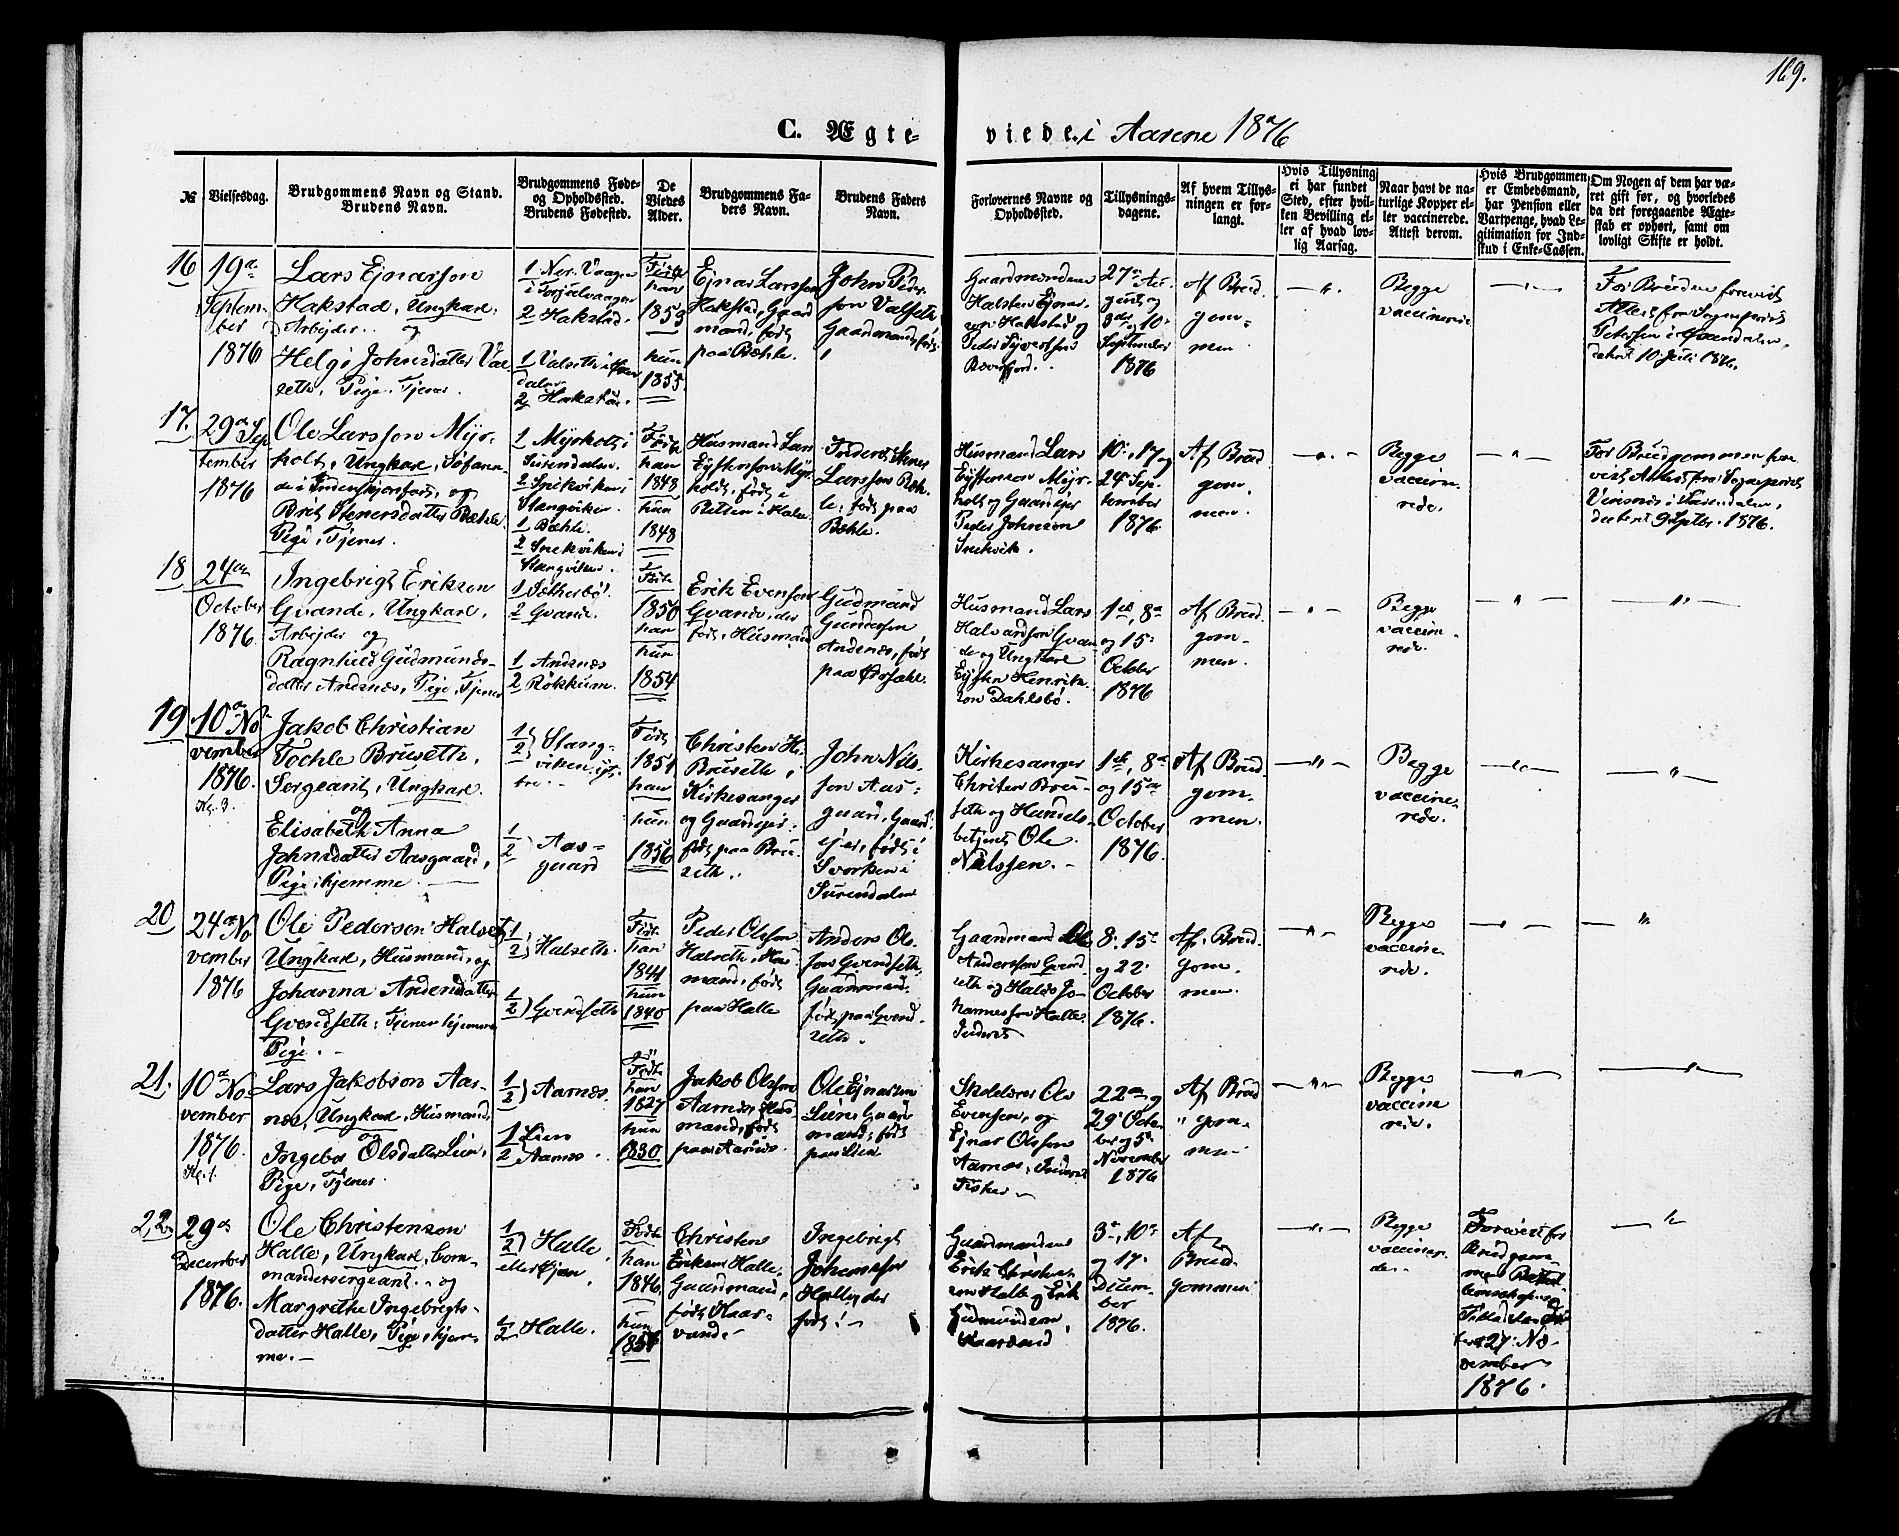 169.
C. Ægte-
viede i Aarene 1876
No
Vielsesdag.
Brudgommens Navn og Stand.
Brudens Navn.
Brudgommens Føde-
og Opholdssted.
Brudens Fødested.
De
Viedes
Alder.
Brudgommens Fa-
ders Navn.
Brudens Faders
Navn.
Forlovernes Navne og
Opholdssted.
Tillysnings-
dagene.
Af hvem Tillys-
ningen er for-
langt.
Hvis Tillysning
ei har fundet
Sted, efter hvil-
ken Bevilling el-
ler af hvad lov-
lig Aarsag.
Naar havt de na-
turlige Kopper el-
ler vaccinerede.
Attest derom.
Hvis Brudgommen
er Embedsmand,
har Pension eller
Vartpenge, hvad Le-
gitimation for Ind-
skud i Enke-Cassen.
Om Nogen af dem har væ-
ret gift før, og hvorledes
da det foregaaende Ægte-
skab er ophørt, samt om
lovligt Skifte er holdt.
16
19a
Septem-
ber
1876
Lars Ejnarson
Hakstad, Ungkarl,
Arbejder og
Helgi Johnsdatter Val-
seth, Pige, Tjener
2 Hakstad.
1 Valseth i
2 Hakstad.
Født
han
1853
hun
1855
Ejnar Larsson
Hakstad, Gaard
mand, født
paa Bæhle.
John Peder-
son Valseth
Gaardmand, født
Gaardmændene
Halsten Ejnar-
son Hakstad og
Peder Sivertson
27a Au-
gust og
3die og 10.
September
1876
Af Brud-
gom-
men
Begge
vaccinerede
For Bruden forevist
Attest fra Sognepræst
datert 10 Juli 1876.
17.
29a Sep
tember
1876
Ole Larsson Myr-
holt, Ungkarl, Søfaren-
Brit Stenersdatter Bæhle
Pige, Tjener.
1 Myrholt i
Surendalen.
2 Snekviken i
Stangviken
1 Bæhle.
2 Snekviken i
Stangviken.
Født
han
1848
hun
1848
Husmand Lars
Eystenson Myr-
holt, født i
Larsson Bæh-
le, født paa
Bæhle.
Husmand Lars
Eystenson Myr-
holt og Gaardejer
Peder Johnson
Snekvik.
10., 17 og
24 Sep-
tember
1876
Af Brud
gom-
men.
Begge
vaccine-
rede.
For Brudgommen fore
vist Attest fra Sognepræst
i Surendalen,
datert 9 Septbr. 1876.
18
24a
October
1876.
Ingebrigt Erikson
Gvande, Ungkarl,
Arbejder og
Ragnhild Gudmunds-
datter Andenæs, Pige, Tjener
1 Sætherbø.
2 Gvande.
1 Andenæs
2 Røkkum.
Født
1850
han
hun
1854
Erik Evenson
Gvande, der
født, Husmand
Gudmund
Gunderson
Andenæs, født
paa
Husmand Lars
Halvardson Gvan-
de og Ungkarl
Eysten Henrik-
son Dahlsbø.
1ste, 8a
og 15.
October
1876
Af Brud
gom-
men.
Begge
vaccine-
rede.
19
10a No-
vember
1876.
Kl. 3.
Jakob Christian
Tochle Bruseth,
Sergeant, Ungkarl.
og
Elisabeth Anna
Johnsdatter Aasgaard,
Pige, hjemme.
1
2 Stang-
viken
1
2 Aas-
gaard
Født
1851
han
hun
1856
Christen H.
Bruseth,
Kirkesanger
og Gaardejer,
født paa Bru-
seth.
John Nils-
son Aas-
gaard, Gaard-
ejer, født i
Svorken i
Surendalen
Kirkesanger
Christen Bru-
seth og Handels-
betjent Ole
Nilssen.
1ste, 8a
og 15a
October
1876.
Af Brud
gom-
men.
Begge
vaccine-
rede.
20
24a No
vember
1876
Ole Pederson Halset
Ungkarl, Husmand, og
Johanna Andersdatter
Gvendseth, Tjener hjemme
Pige.
1
2 Halseth.
1
2 Gvendseth
Født
han
1844
hun
1840
Peder Olsson
Halseth, Hus-
mand, født
paa Halle
Anders Ol-
son Gvendseth,
Gaardmand,
født paa Gvend-
seth.
Gaardmand Ole
Andersson Gvend
seth og Haldo Jo-
hannesson Halle,
Inderst
8., 15.
og 22.
October
1876.
Af Brud-
gom-
men.
Begge
vaccine-
rede.
21.
10a No
vember
1876.
Kl. 1.
Lars Jakobson Aar-
næs, Ungkarl, Husmand,
og
Ingebor Olsdatter Lien,
Pige, Tjener.
1
2 Aarnæs.
1 Lien
2 Aarnæs.
Født
han
1827
hun
1830
Jakob Olsson
Aarnæs, Hus-
mand, født
paa Aarnæs.
Ole Ejnarson
Lien, Gaard
mand, født
paa Lien.
Skolelærer Ole
Evensen, og
Ejnar Olsson
Aarnæs, Inderst
Fisker
22a og
29. Octo-
ber og 5te
November
1876
Af Brud
gom-
men
Begge
vaccine
rede.
22.
29a
December
1876.
Ole Christenson
Halle, Ungkarl, Com-
mandersergeant og
Margrethe Ingebrigts-
datter Halle, Pige, hjem-
me.
1
2 Halle,
1
2 Halle.
Født
han
1846
hun
Christen
Erikson Halle,
Gaardmand,
født Kaar-
vand.
Ingebrigt
Johansson
Halle, der
født.
Gaardmændene
Erik Christen-
son Halle og Erik
Gudmundson
Kaarvand
3a, 10a
og 17.
Decem-
ber
1876.
Af
Brud
gommen
Begge
vaccine-
rede.
Forevist for
Brudgom-
men
27. No-
vember
1876.